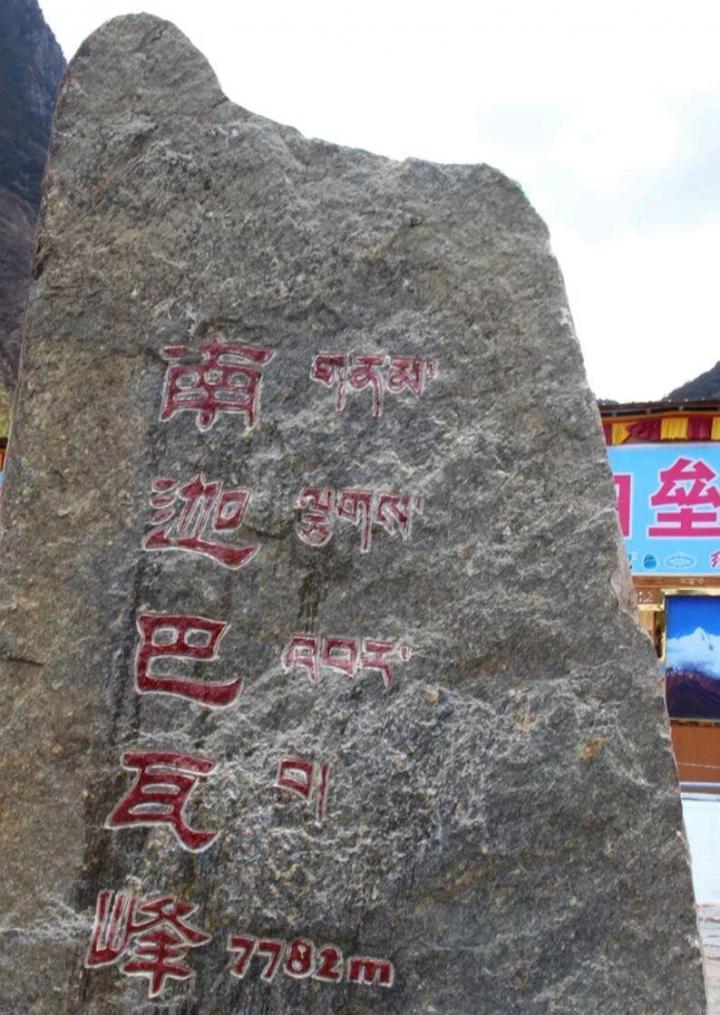 南迦巴瓦峰
གནམ་
ལྕགས་
འབར་
བ།
7782m
垒